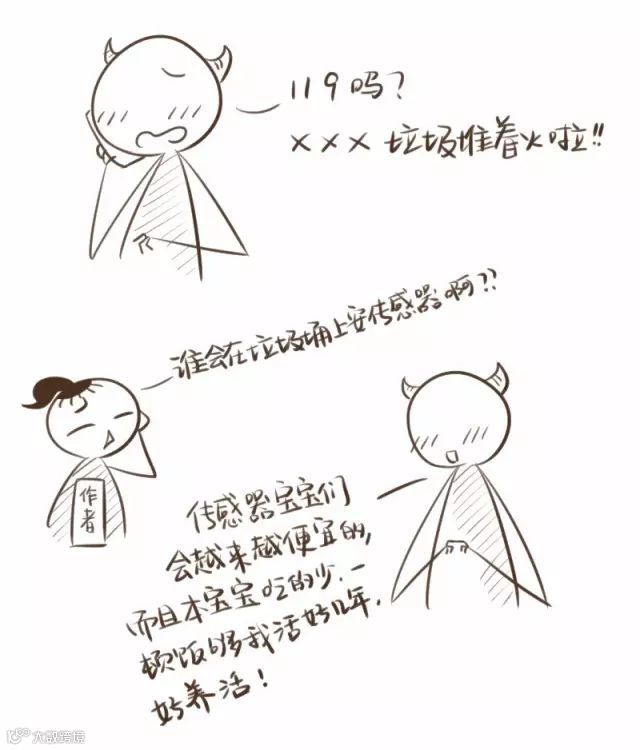 119吗?
×××垃圾堆着火啦!!
谁会在垃圾埇上安传感器啊??
作者
传感器宝宝们
会越来越便宜的,
而且本宝宝吃的少.一
顿饭够我活好几年.
好养活!
大数跨境